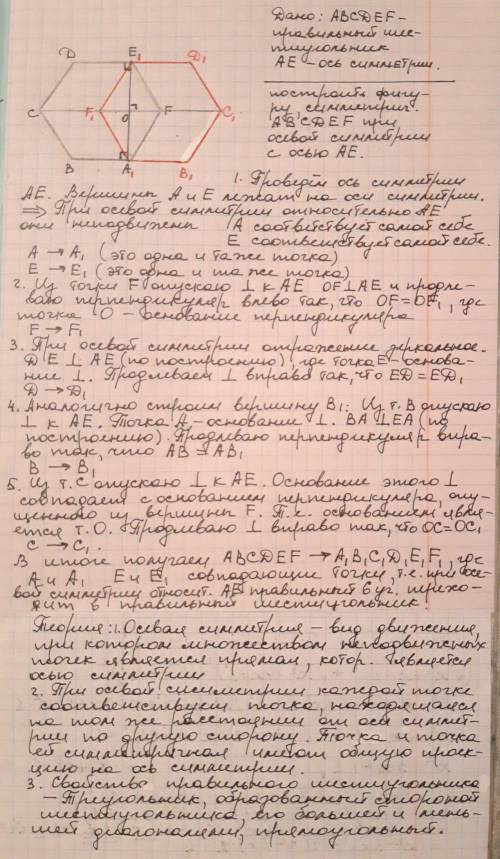 D E₁ D₁
C F₁ O F C₁
B A₁ B₁
Дано: ABCDEF –
правильный шес-
тиугольник
AE – ось симметрии.
построить фигу-
ру, симметрич.
ABCDEF при
осевой симметрии
с осью AE.
1. Проведём ось симметрии
AE. Вершины A и E лежат на оси симметрии.
⇒ При осевой симметрии относительно AE
они неподвижны A соответствует самой себе
E соответствует самой себе.
A → A₁ (это одна и та же точка)
E → E₁ (это одна и та же точка)
2. Из точки F опускаю ⊥ к AE OF⊥AE и продле-
ваю перпендикуляр влево так, что OF=OF₁, где
точка O – основание перпендикуляра
F → F₁
3. При осевой симметрии отражение зеркальное.
DE ⊥ AE (по построению), где точка E – основа-
ние ⊥. Продлеваем ⊥ вправо так, что ED = ED₁
D → D₁
4. Аналогично строим вершину B₁: Из т. B опускаю
⊥ к AE. Точка A – основание ⊥. BA ⊥ EA (по
построению). Продлеваю перпендикуляр впра-
во так, что AB = AB₁
B → B₁
5. Из т. C опускаю ⊥ к AE. Основание этого ⊥
совпадает с основанием перпендикуляра, опу-
щенного из вершины F. Т.е. основанием явля-
ется т. O. Продлеваю ⊥ вправо так, что OC=OC₁
C → C₁.
В итоге получаем ABCDEF → A₁B₁C₁D₁E₁F₁, где
A и A₁ E и E₁ совпадающие точки, т.е. при осе-
вой симметрии относит. AE правильный 6уг. перехо-
дит в правильный шестиугольник.
Теория: 1. Осевая симметрия – вид движения,
при котором множеством неподвижных
точек является прямая, котор. является
осью симметрии
2. При осевой симметрии каждой точке
соответствует точка, находящаяся
на том же расстоянии от оси симмет-
рии по другую сторону. Точка и точка
ей симметричная имеют общую проек-
цию на ось симметрии.
3. Свойство правильного шестиугольника
– Треугольник, образованный стороной
шестиугольника, его большей и мень-
шей диагоналями, прямоугольный.